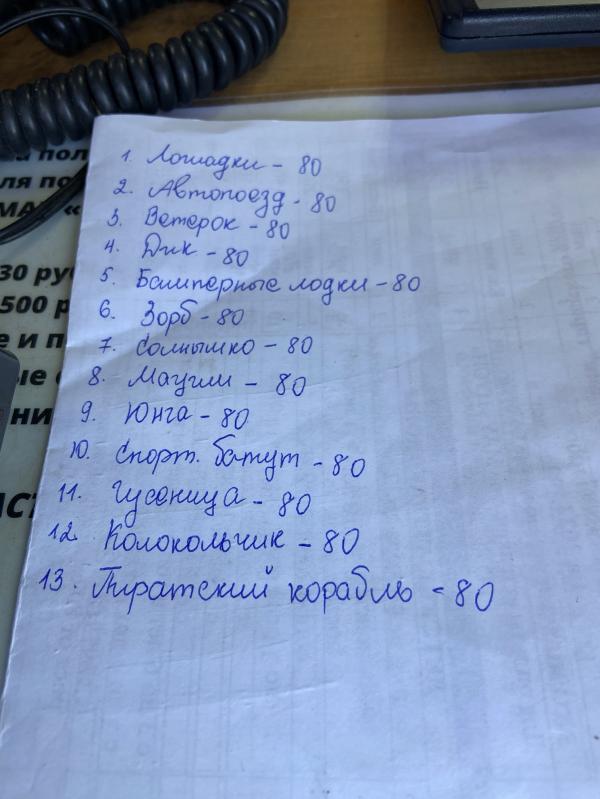 1. Лошадки - 80
2. Автопоезд - 80
3. Ветерок - 80
4. Дик - 80
5. Бамперные лодки - 80
6. Зорб - 80
7. Солнышко - 80
8. Маугли - 80
9. Юнга - 80
10. Спорт. батут - 80
11. Гусеница - 80
12. Колокольчик - 80
13. Пиратский корабль - 80
30 руб
500 р